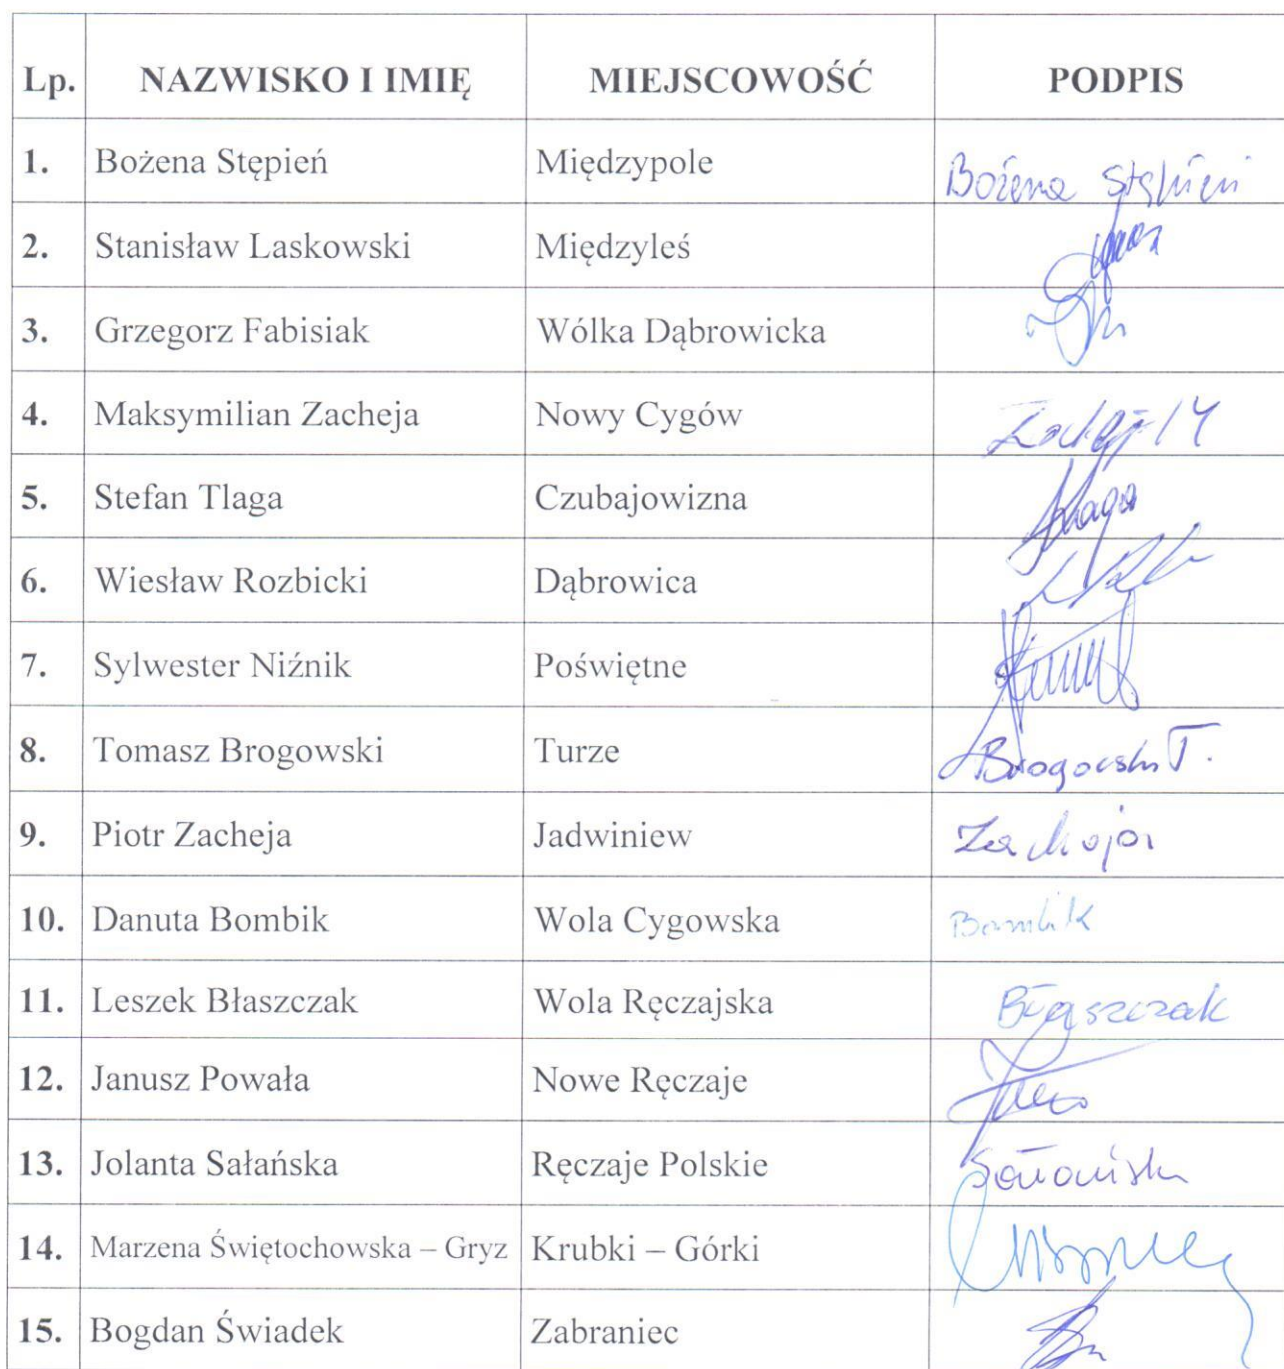 Lp. NAZWISKO I IMIĘ MIEJSCOWOŚĆ PODPIS
1. Bożena Stępień Międzypole Bożena Stępień
2. Stanisław Laskowski Międzyleś
3. Grzegorz Fabisiak Wólka Dąbrowicka
4. Maksymilian Zacheja Nowy Cygów
5. Stefan Tlaga Czubajowizna
6. Wiesław Rozbicki Dąbrowica
7. Sylwester Niźnik Poświętne
8. Tomasz Brogowski Turze Brogowski T.
9. Piotr Zacheja Jadwiniew Zacheja
10. Danuta Bombik Wola Cygowska Bombik
11. Leszek Błaszczak Wola Ręczajska Błaszczak
12. Janusz Powała Nowe Ręczaje
13. Jolanta Sałańska Ręczaje Polskie Sałańska
14. Marzena Świętochowska – Gryz Krubki – Górki
15. Bogdan Świadek Zabraniec